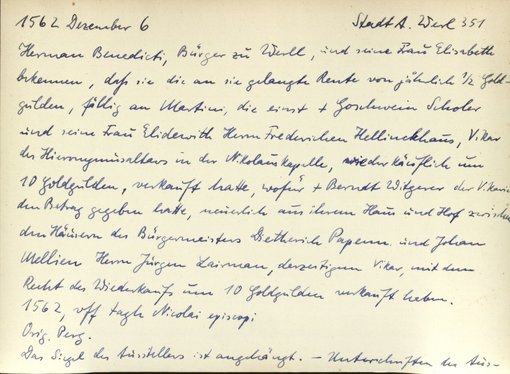 1562 Dezember 6 Stadt A. Werl 351
Herman Benedicti, Bürger zu Werll, und seine Frau Elisabeth
bekennen, daß sie die an sie gelangte Rente von jährlich 1/2 Gold-
gulden, fällig an Martini, die einst + Goschwein Scholer
und seine Frau Elidewith Herrn Frederichen Hellinckhaus, Vikar
des Hieronymusaltars in der Nikolauskapelle, wiederkäuflich um
10 Goldgulden, verkauft hatte, wofür + Berndt Witgerer der Vikarie
den Betrag gegeben hatte, neuerlich aus ihrem Haus und Hof zwischen
den Häusern des Bürgermeisters Dietherich Papenn und Johan
Mellien Herrn Jürgen Zairman, derzeitigem Vikar, mit dem
Recht des Wiederkaufs um 10 Goldgulden verkauft haben.
1562, vff tagh Nicolai episcopi
Orig. Perg.
Das Siegel des Ausstellers ist angehängt. — Unterschriften des Aus-